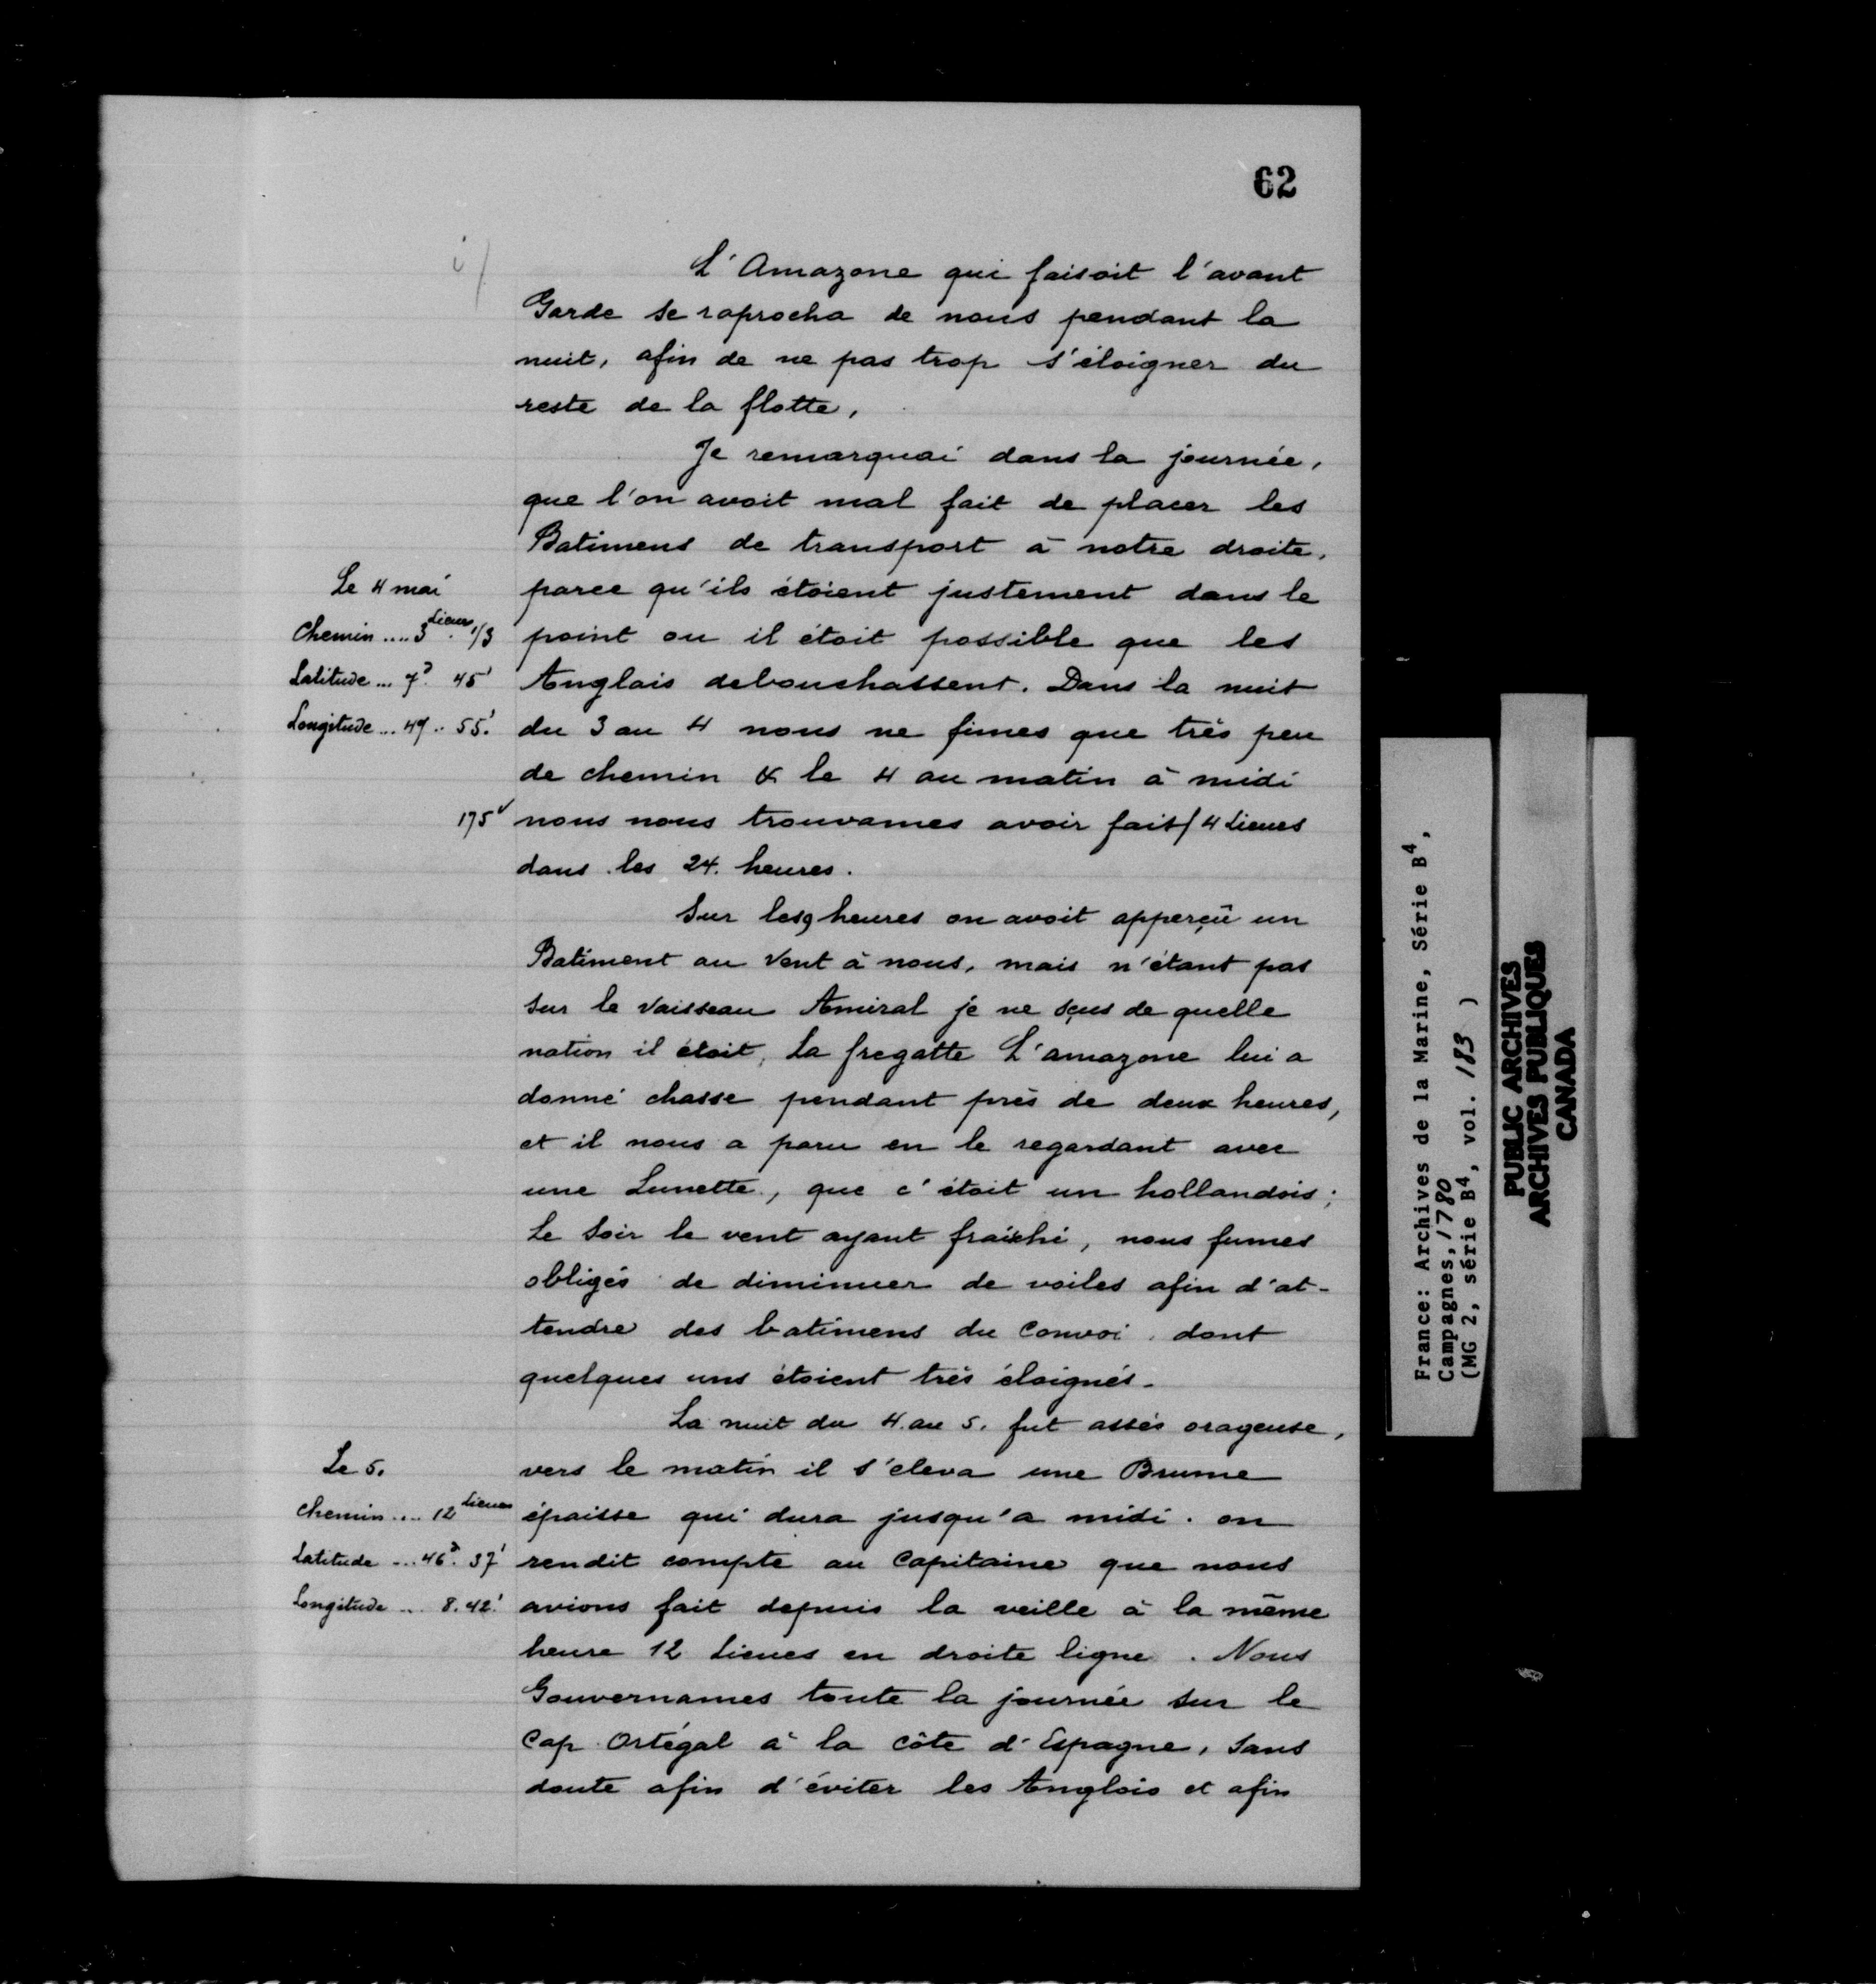 62
L'Amazone qui faisoit l'avant
Garde se raprocha de nous pendant la
nuit, afin de ne pas trop s'éloigner du
reste de la flotte,
Je remarquai dans la journée,
que l'on avoit mal fait de placer les
Batimens de transport à notre droite,
Le 4 mai
parce qu'ils étoient justement dans le
Chemin .... 3 Lieues 1/3
point ou il étoit possible que les
Latitude ... 7d. 45'
Anglais debouchassent. Dans la nuit
Longitude ... 49 .. 55'.
du 3 au 4 nous ne fimes que très peu
de chemin & le 4 au matin à midi
175
nous nous trouvames avoir fait / 4 Lieues
dans les 24. heures.
Sur les 9 heures on avoit apperçû un
Batiment au Vent à nous, mais n'étant pas
sur le Vaisseau Amiral je ne sçus de quelle
nation il étoit, La fregatte L'amazone lui a
donné chasse pendant près de deux heures,
et il nous a paru en le regardant avec
une Lunette, que c'étoit un hollandois;
Le Soir le vent ayant fraichi, nous fumes
obligés de diminuer de voiles afin d'at-
tendre des batimens du Convoi dont
quelques uns étoient très éloignés.
La nuit du 4. au 5. fut assés orageuse,
Le 5.
vers le matin il s'eleva une Brume
Chemin .... 12 Lieues
épaisse qui dura jusqu'a midi. on
Latitude ... 46d. 37'
rendit compte au Capitaine que nous
Longitude ... 8. 42'.
avions fait depuis la veille à la même
heure 12 Lieues en droite ligne. Nous
Gouvernames toute la journée sur le
Cap Ortégal à la Côte d'Espagne, sans
doute afin d'éviter les Anglois et afin
France: Archives de la Marine, Série B4,
Campagnes, 1780
(MG 2, série B4, vol. 183 )
PUBLIC ARCHIVES
ARCHIVES PUBLIQUES
CANADA